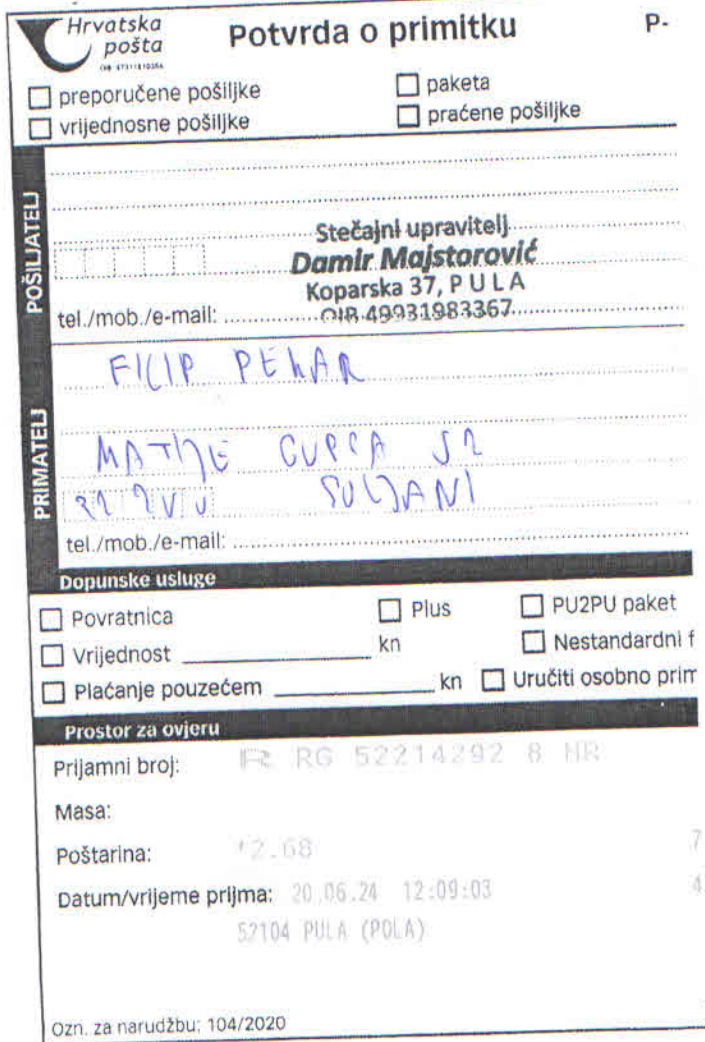 Hrvatska
pošta
Potvrda o primitku
P-
preporučene pošiljke
paketa
vrijednosne pošiljke
praćene pošiljke
POŠILJATELJ
Stečajni upravitelj
Damir Majstorović
Koparska 37, PULA
tel./mob./e-mail:
OIB 49931983367
PRIMATELJ
FILIP PEKAR
MATIJE GUPCA
tel./mob./e-mail:
Dopunske usluge
Povratnica
Plus
PU2PU paket
Vrijednost
kn
Nestandardni f
Plaćanje pouzećem
kn
Uručiti osobno prim
Prostor za ovjeru
Prijamni broj:
R RG 52214292 8 HR
Masa:
Poštarina:
*2.68
7
Datum/vrijeme prijma:
20.06.24 12:09:03
4
52104 PULA (POLA)
Ozn. za narudžbu: 104/2020